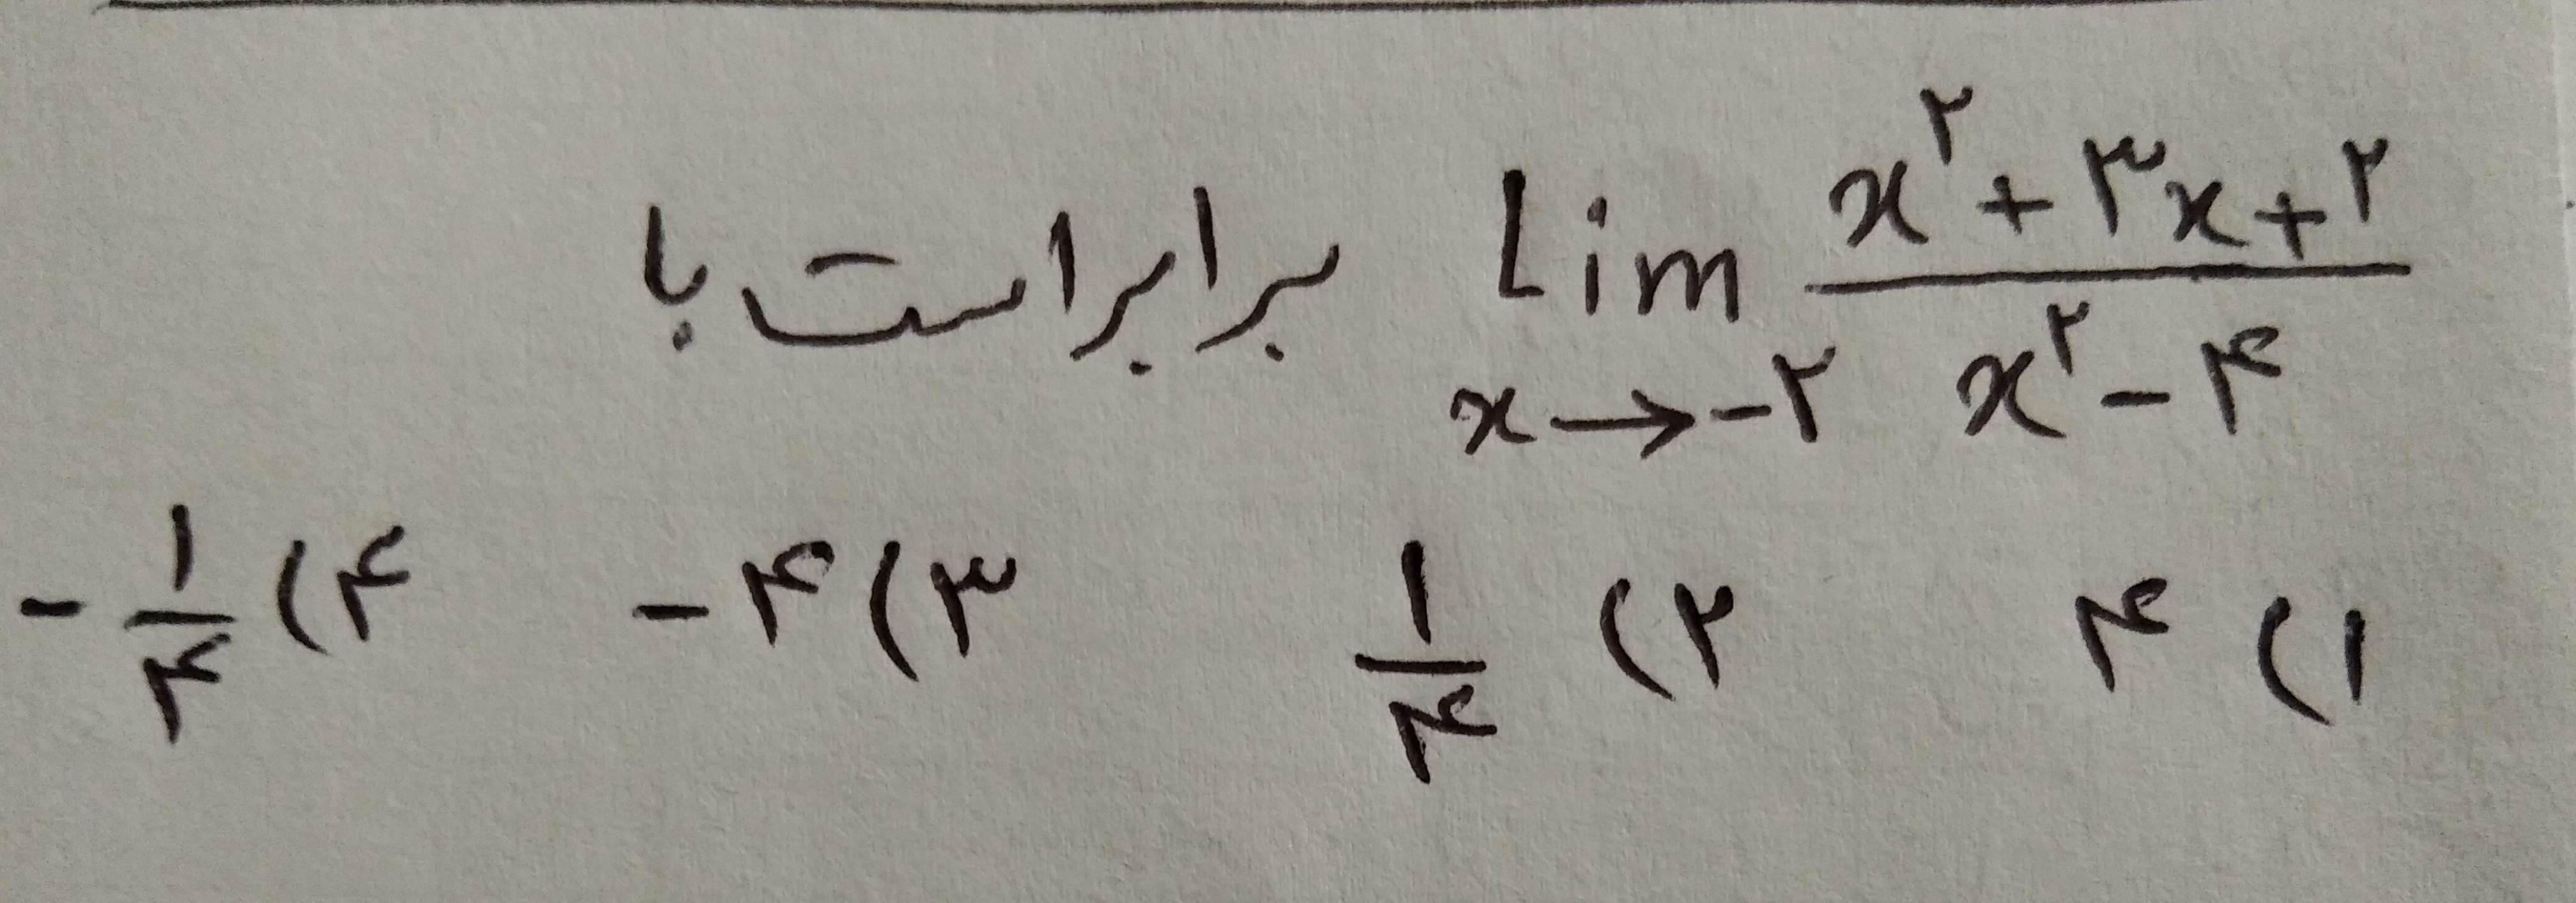 lim x→-۲ (x^۲ + ۳x + ۲)/(x^۲ - ۴) برابر است با
۱) ۴ ۲) ۱/۴ ۳) -۴ ۴) -۱/۴